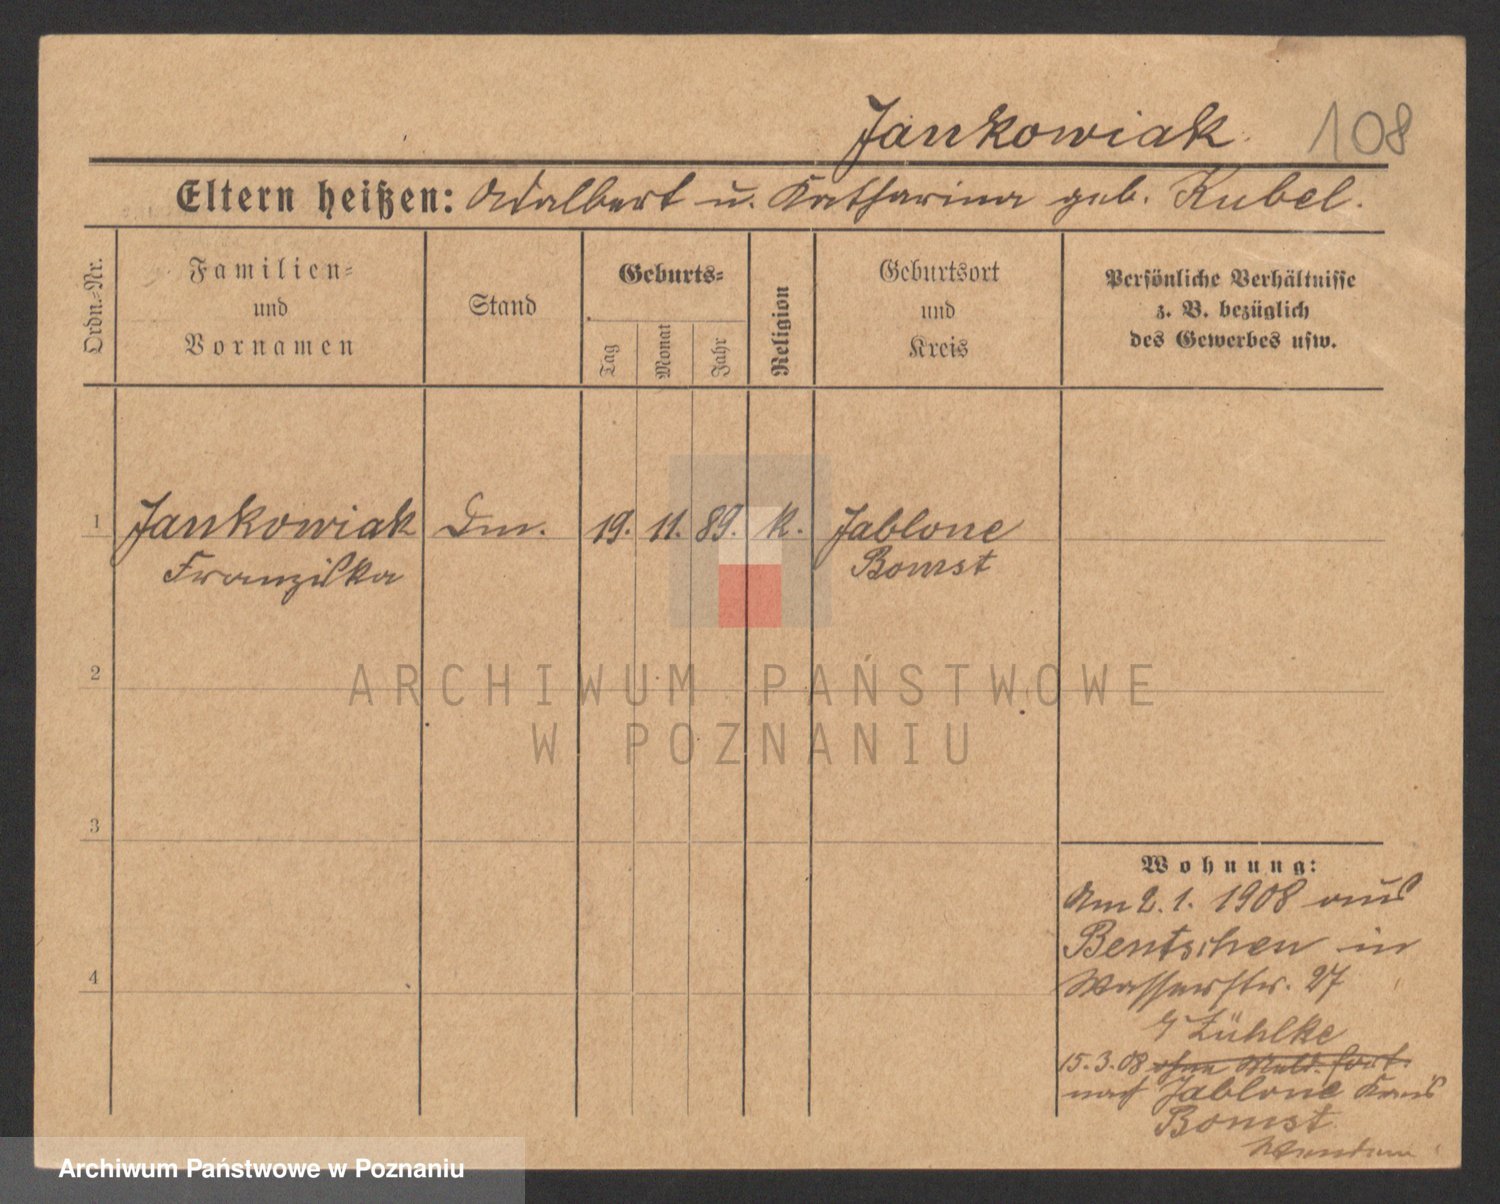 Jankowiak. 108
Eltern heißen: Adalbert u. Katharina geb. Kubel.
Ordn.-Nr.
Familien-
und
Vornamen
Stand
Geburts-
Tag
Monat
Jahr
Religion
Geburtsort
und
Kreis
Persönliche Verhältnisse
z. B. bezüglich
des Gewerbes usw.
1 Jankowiak Dm. 19. 11. 89. k. Jablone
Franziska Bomst
2
ARCHIWUM PAŃSTWOWE
W POZNANIU
3
Wohnung:
Am 2. 1. 1908 aus
Bentschen in
4
Wasserstr. 27
Zühlke
15.3.08 ohne Meld. fort.
nach Jablone Kreis
Bomst
Archiwum Państwowe w Poznaniu